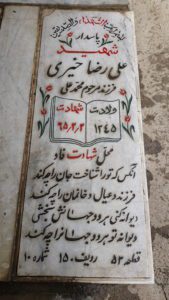 پاسدار
شهید
علی رضا خیبری
فرزند مرحوم محمد علی
ولادت شهادت
۱۳۴۵ ۶۵/۲/۲
محل شهادت فاو
آنکس که تو را شناخت جان را چه کند
فرزند و عیال و خانمان را چه کند
دیوانه کنی هر دو جهانش بخشی
دیوانه تو هر دو جهان را چه کند
قطعه ۵۳ ردیف ۱۵۰ شماره ۱۰